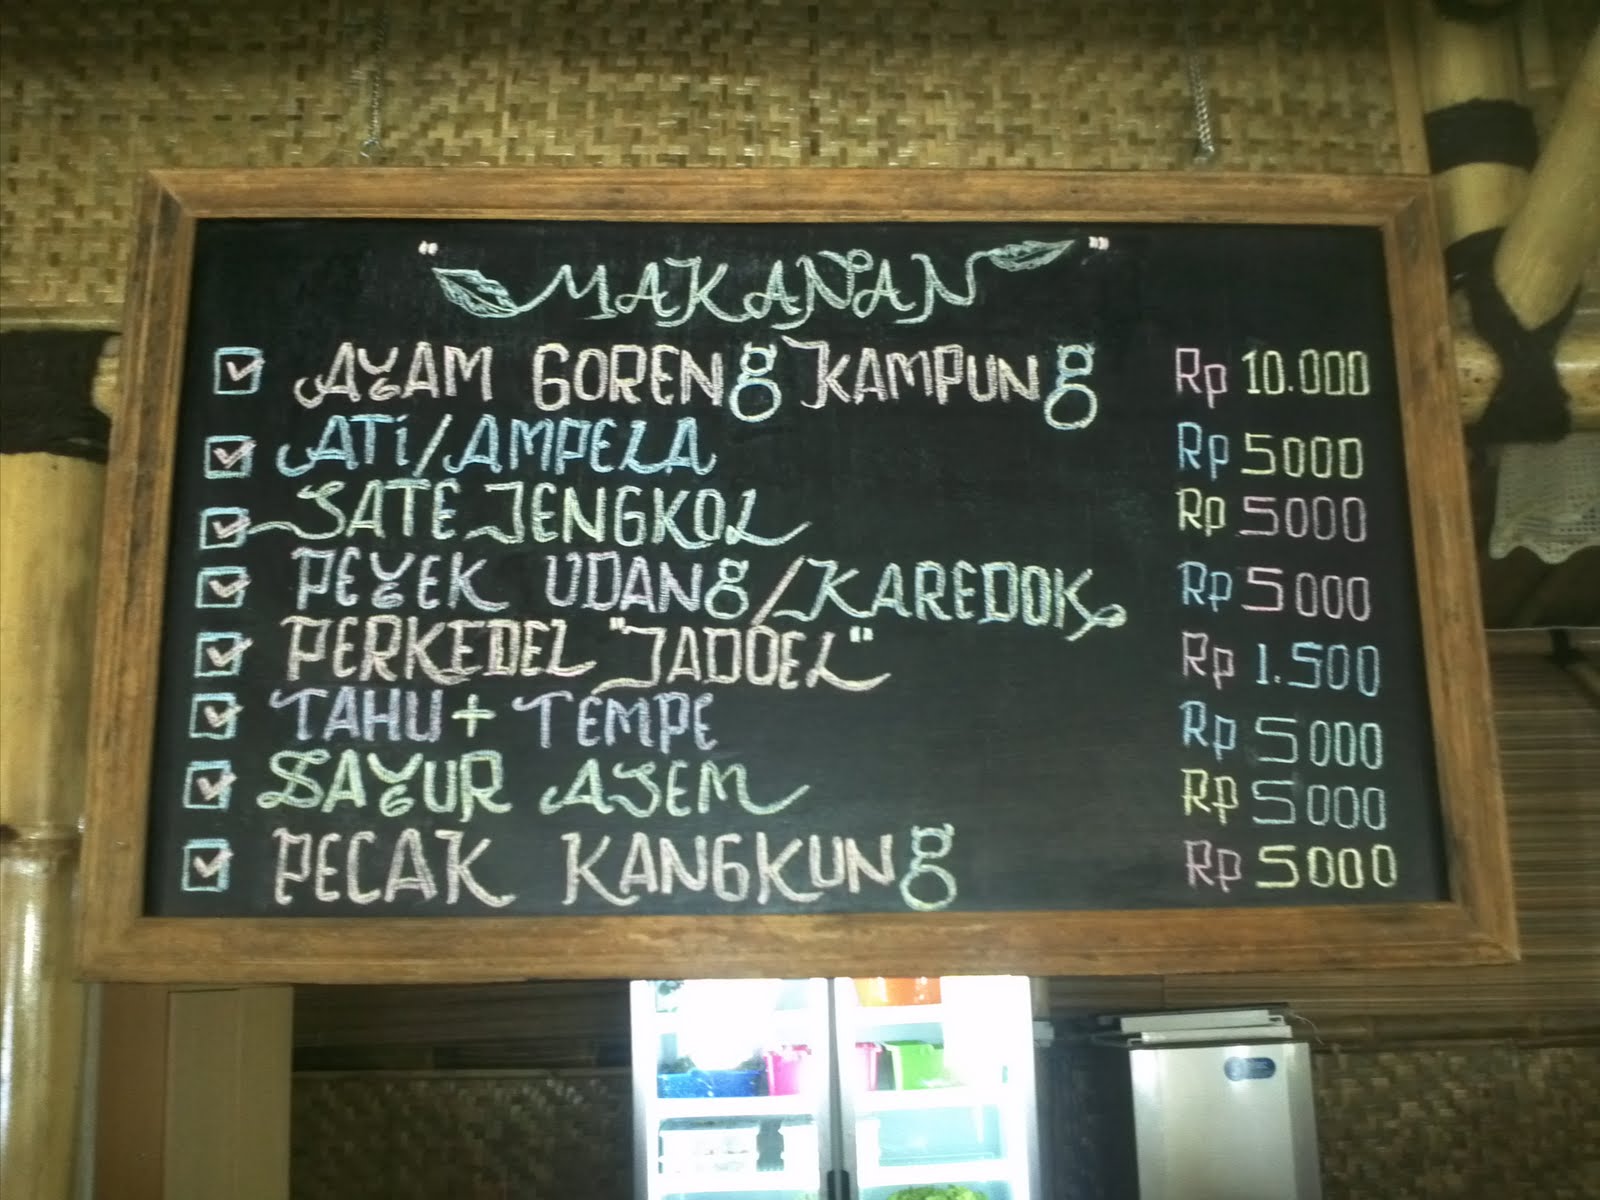 “ MAKANAN ”
AYAM GORENg KAMPUNg Rp 10.000
ATi/AMPELA Rp 5000
SATE JENGKOL Rp 5000
PEYEK UDANg/KAREDOK Rp 5000
PERKEDEL "JADOEL" Rp 1.500
TAHU + TEMPE Rp 5000
SAYUR ASEM Rp 5000
PECAK KANGKUNg Rp 5000